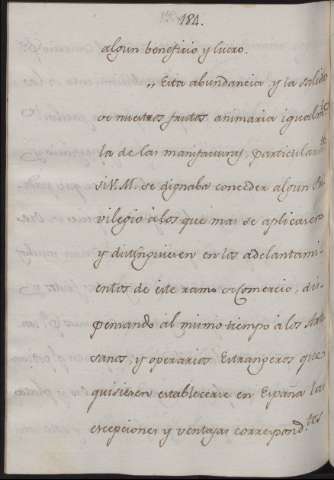 184.
algun beneficio y lucro.
„ Esta abundancia y la salida
de nuestros frutos animaria igualm.te
la de las manifacturas, particularm.te
si V.M. se dignaba conceder algun Pri
vilegio à los que mas se aplicasen
y distinguiesen en los adelantami-
entos de este ramo de Comercio, dis
pensando al mismo tiempo à los Arte
sanos, y operarios Estrangeros que
quisiesen establecerse en España las
excepciones y ventajas correspond.tes